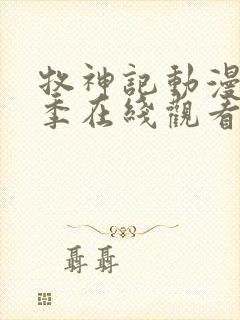 牧神記動漫
季在綫觀看
聶聶